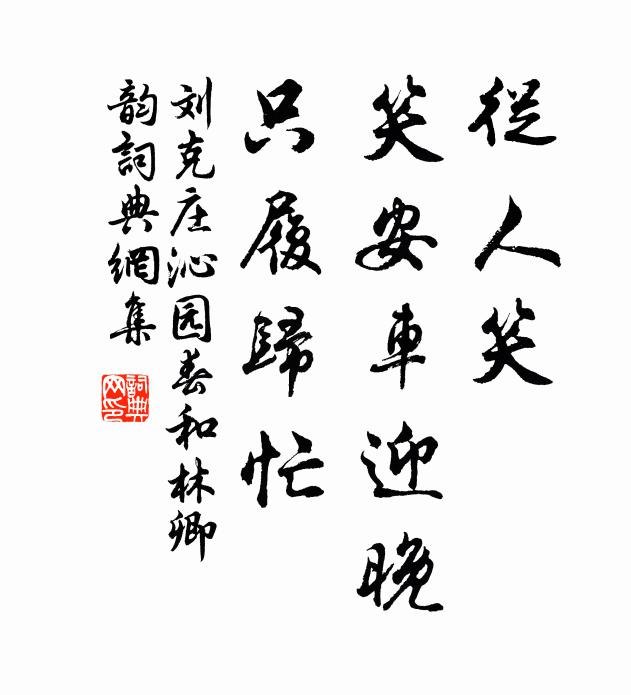 從人笑
笑安車迎晚
只履歸忙
刘克庄沁园春和林卿
韵詞典網集
詞典
网印